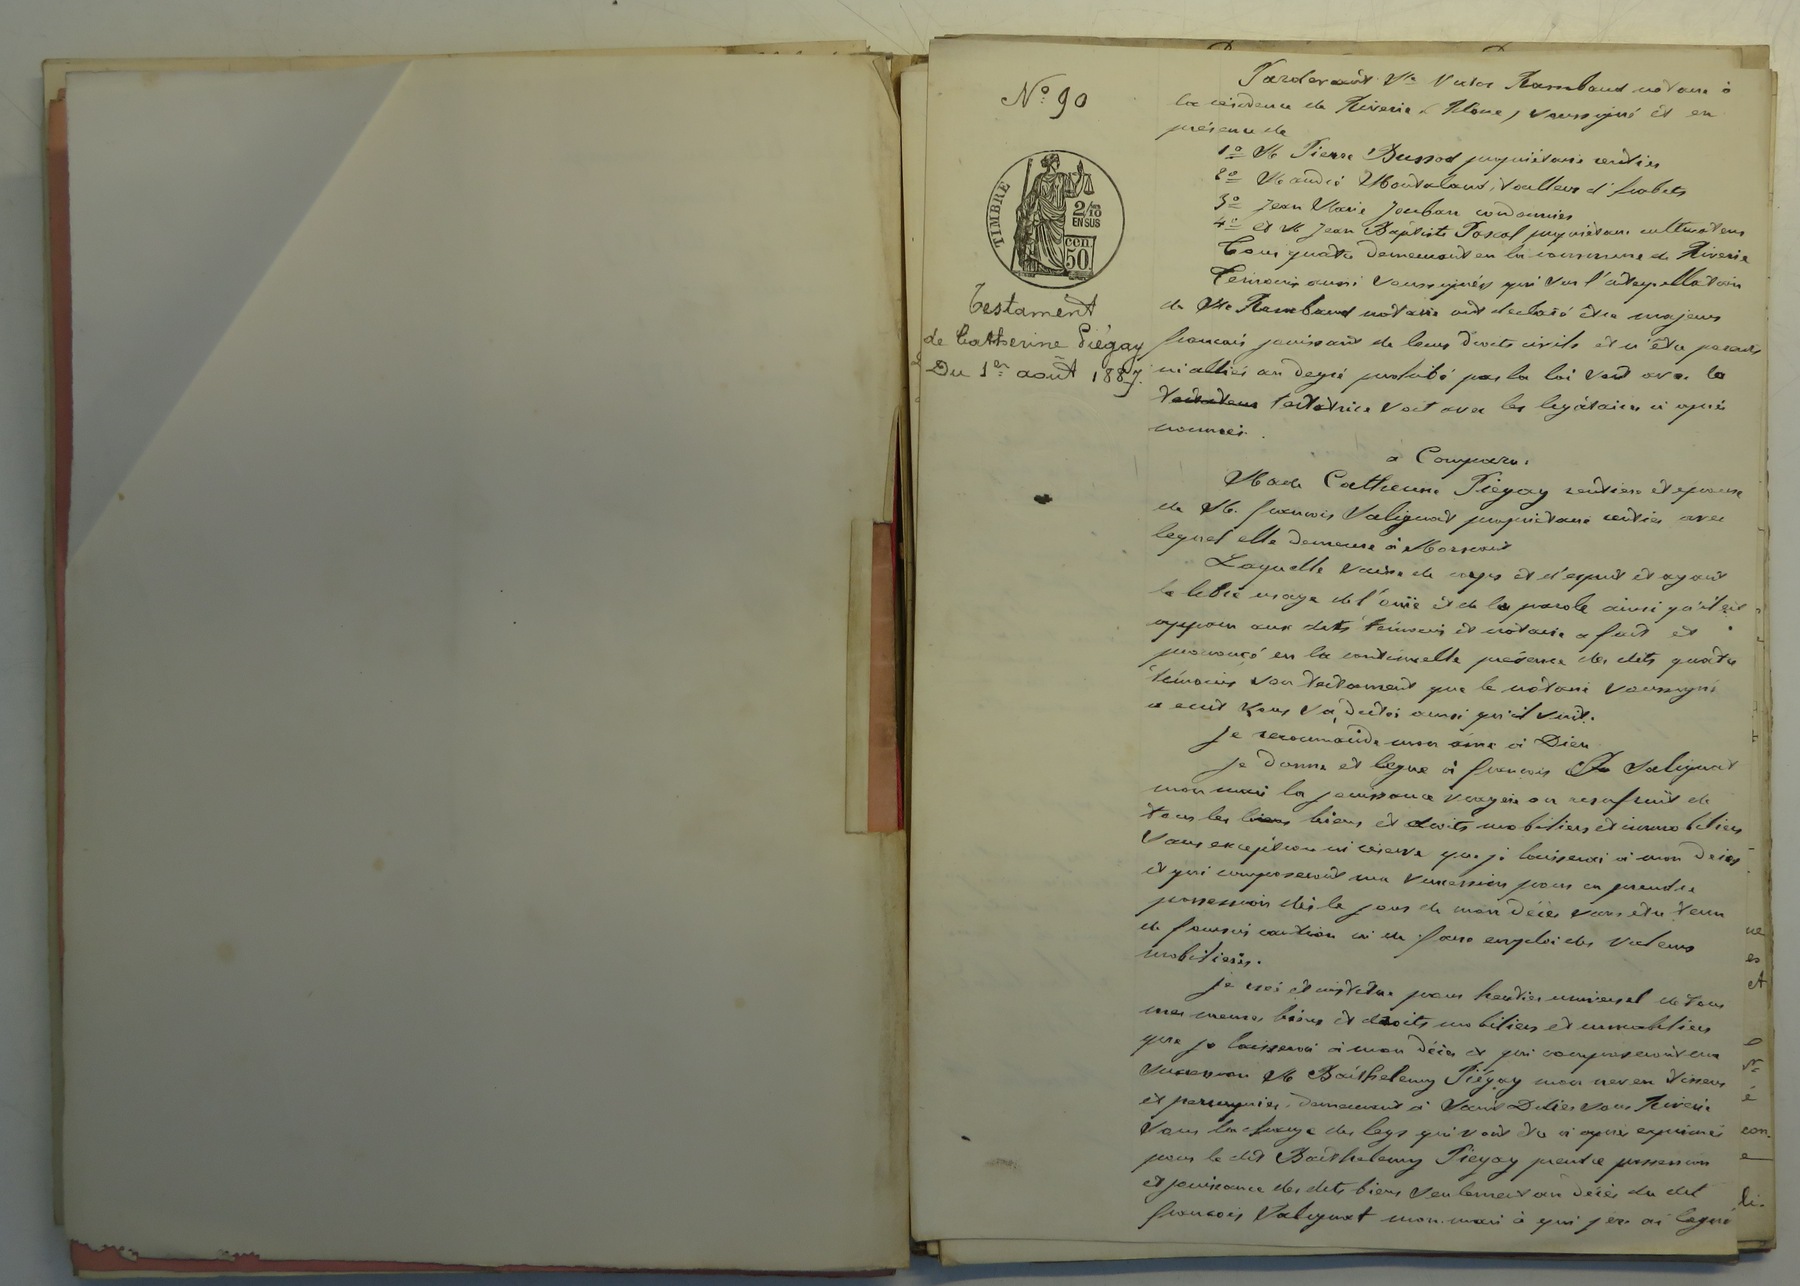 N° 90
TIMBRE
2/10
EN SUS
cen.
50
Testament
de Catherine Piégay
Du 1er août 1887.
Pardevant Me Victor Rambaud notaire à
la résidence de Riverie (Rhône) soussigné et en
présence de
1° M. Pierre Bussod propriétaire rentier
2° M. andré Montaland, tailleur d'habits
3° Jean Marie Jouban cordonnier
4° et M. Jean Baptiste Pascal propriétaire cultivateur
Tous quatre demeurant en la commune de Riverie
Témoins aussi soussignés qui sur l'interpellation
de Me Rambaud notaire ont déclaré être majeurs
français jouissant de leurs droits civils et n'être parents
ni alliés au degré prohibé par la loi soit avec la
testateur testatrice soit avec les légataires ci après
nommés.
a Comparu.
Made Catherine Piegay rentière et épouse
de M. françois Salignat propriétaire rentier avec
lequel elle demeure à Mornant
Laquelle saine de corps et d'esprit et ayant
le libre usage de l'ouïe et de la parole ainsi qu'il est
apparu aux dits témoins et notaire a fait et
prononcé en la continuelle présence des dits quatre
témoins son testament que le notaire soussigné
a écrit sous sa dictée ainsi qu'il suit.
Je recommande mon âme à Dieu
Je donne et legue à françois Salignat
mon mari la jouissance viagère ou usufruit de
tous les biens biens et droits mobiliers et immobiliers
Sans exception ni réserve que je laisserai à mon décès
et qui composeront ma succession pour en prendre
possession dès le jour de mon décès sans être tenu
de fournir caution ni de faire emploi des valeurs
mobilières.
Je créé et institue pour héritier universel de tous
mes memes biens et droits mobiliers et immobiliers
que je laisserai à mon décès et qui composeront ma
succession M. Barthelemy Piégay mon neveu tisseur
et perruquier, demeurant à Saint Didier sous Riverie
Sous la charge des legs qui vont être ci après exprimés
pour le dit Barthelemy Piegay prendre possession
et jouissance des dits biens seulement au décès du dit
françois Salignat mon mari à qui j'en ai legué